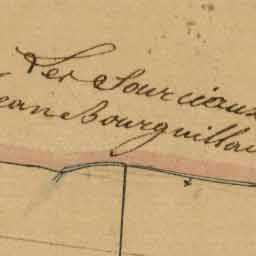 Les Sourcioux
Jean Bourguillau